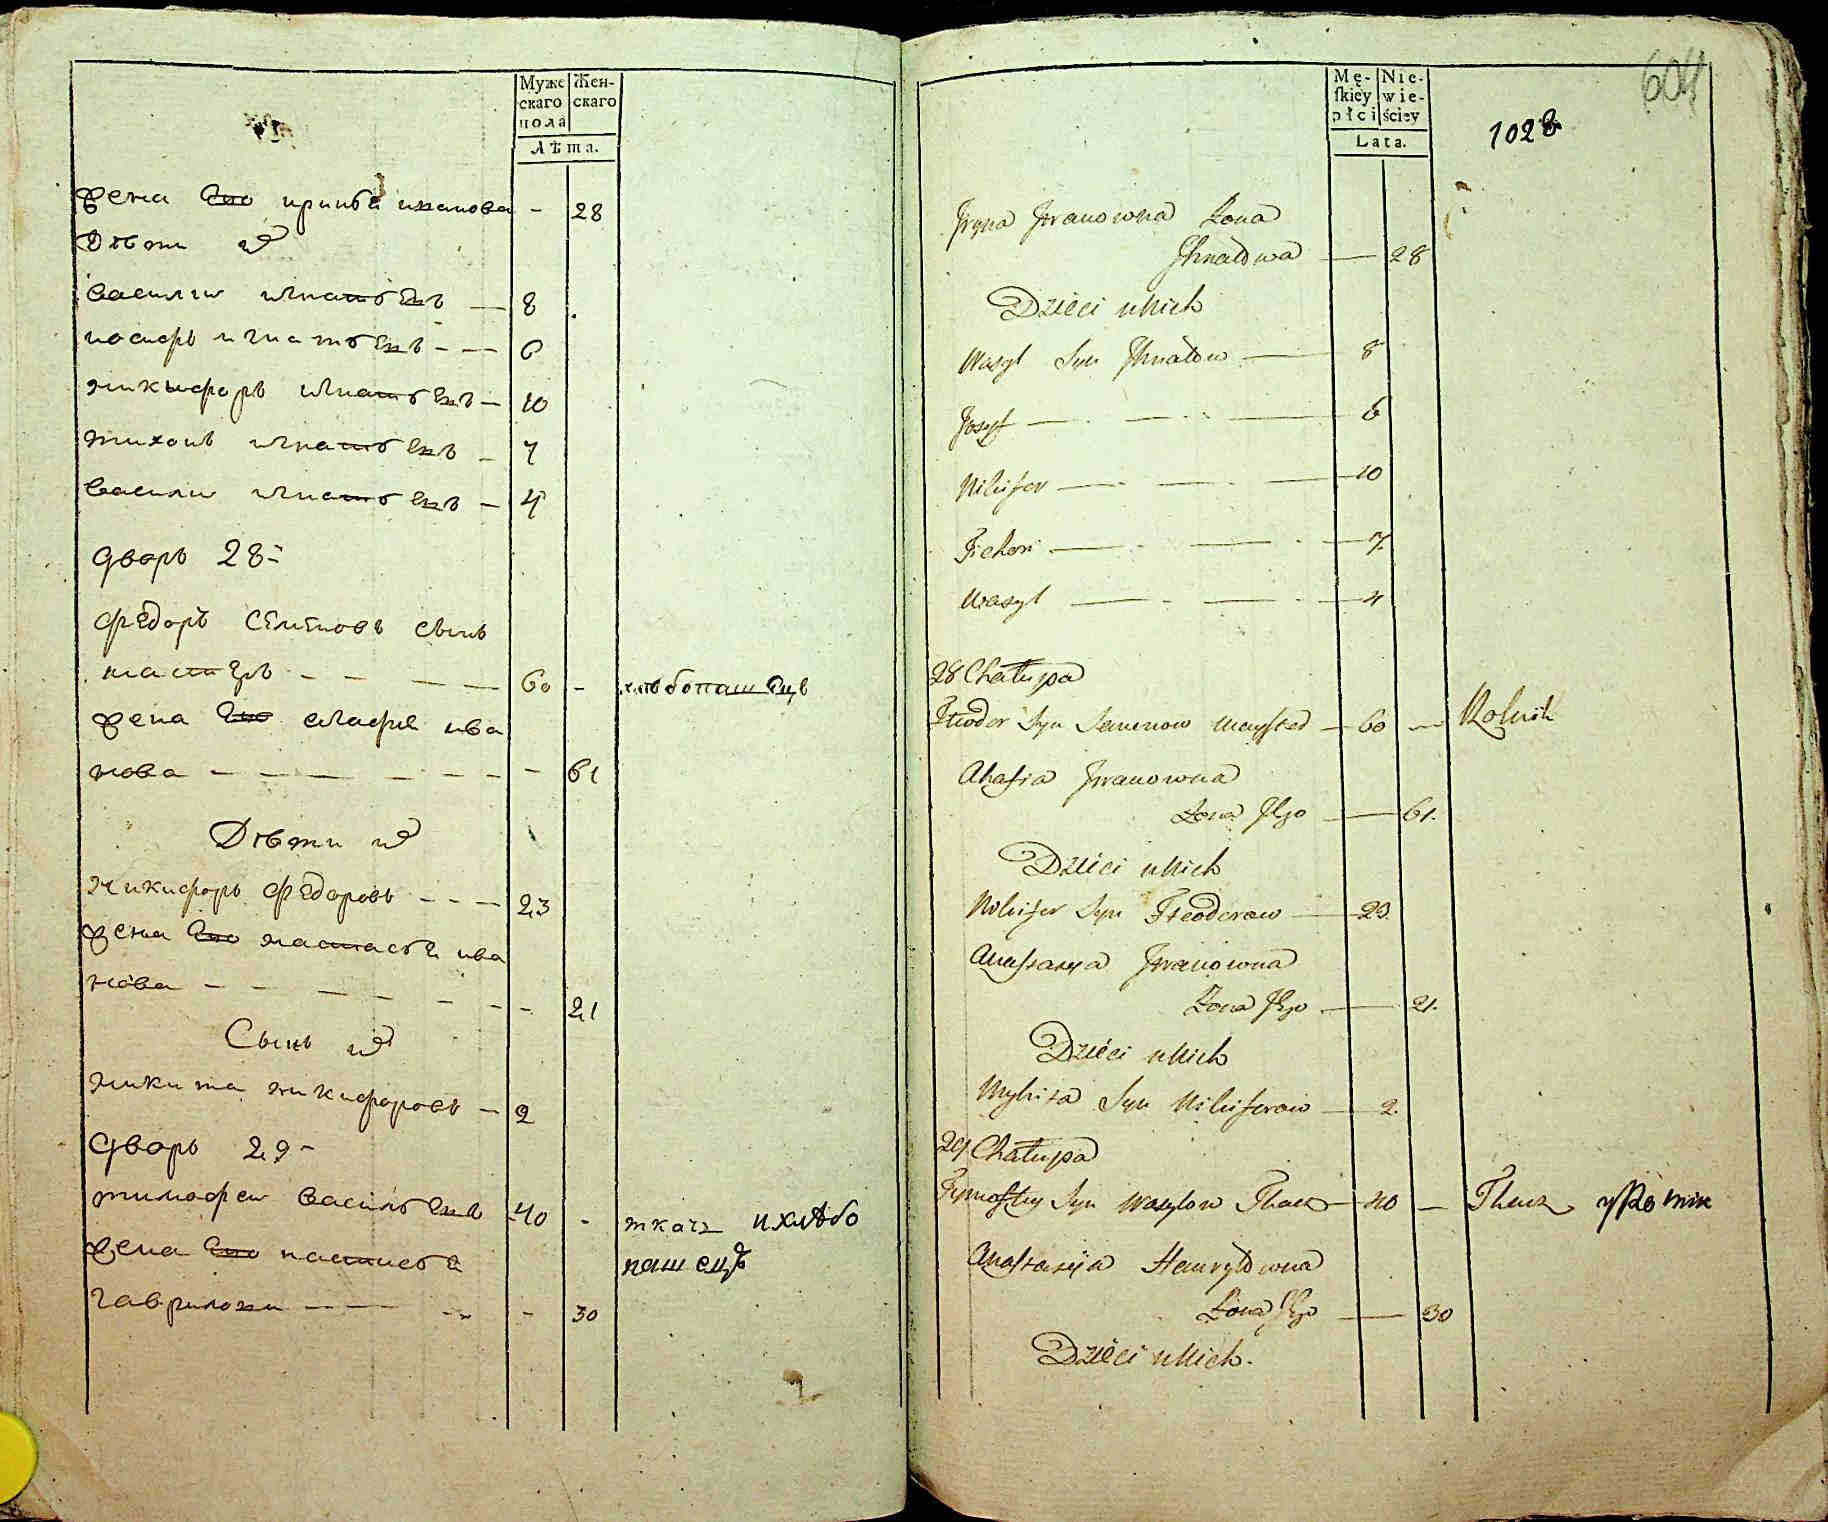 Муже
скаго
пола
Жен-
скаго
Лѣта.
жена его иринья иванова - 28
Дѣти их
василии игнатьевъ — 8
иосифъ игнатьевъ - - — 6
никифоръ игнатьевъ — 10
тихонъ игнатьевъ - 7
василии игнатьевъ — 4
дворъ 28-
Федоръ Семеновъ сынъ
- - — — 60 - хлѣбопашецъ
жена его агафия ива
нова - — — — - - - - 61
Дѣти их
никифоръ федоровъ - - - 23
жена его настасья ива
нова - - — - - - - 21
Сынъ их
никита никифоровъ - 2
дворъ 29-
тимофеи васильевъ 40 - ткачъ и хлѣбо
жена его настасья пашецъ
гаврилова - — — - 30
Mę-
skiéy
płci
Nie-
wie-
ściey
Lata.
604
1028
Jryna Jwanowna Żona
Jhnatowa — 28
Dzieci uNich
Wasyl Syn Jhnatow — 8
Josyf — 6
Nikifor — 10
Tichon — 7.
Wasyl — 4
28 Chałupa
Fteodor Syn Semenow — 60 — Rolnik
Ahafia Jwanowna
Żona Jego — 61.
Dzieci uNich
Nikifor Syn Fteodorow — 23.
Anastasya Jwanowna
Żona Jego — 21.
Dzieci uNich
Mykita Syn Nikiforow — 2.
29 Chałupa
Tymoftey Syn Wasylow Tkacz — 40 — Tkacz y Rolnik
Anastasyia Hawryłowna
Żona Jego — 30
Dzieci uNich.